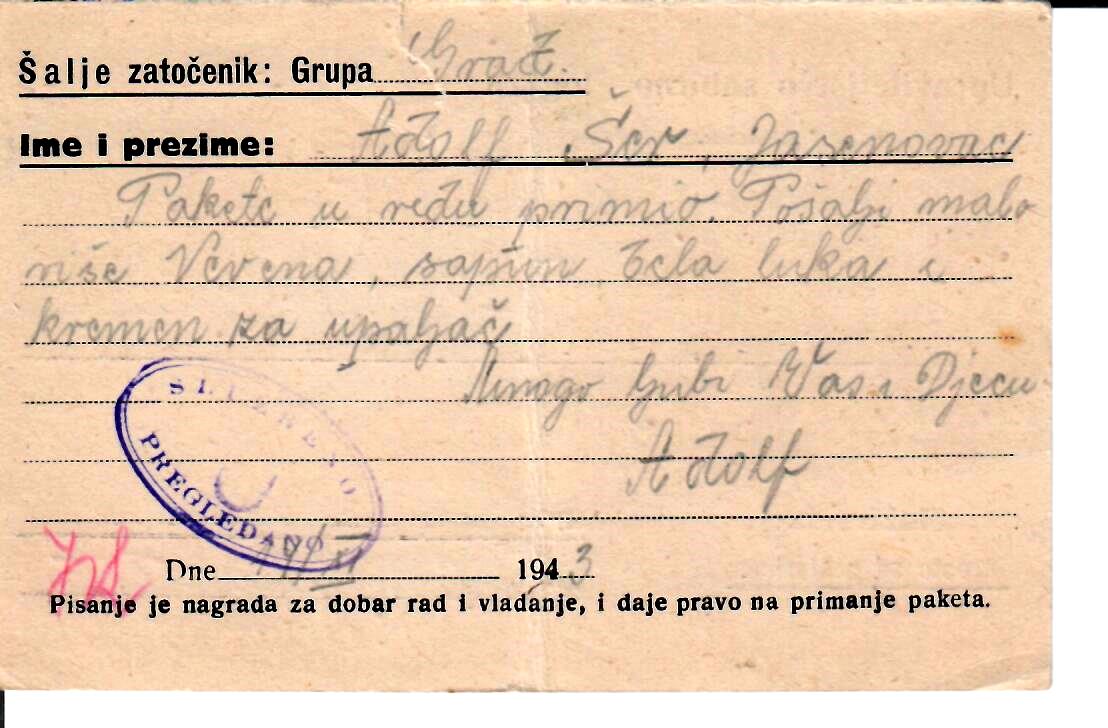 Šalje zatočenik: Grupa Grad.
Ime i prezime: Adolf Šer, Jasenovac
Pakete u redu primio. Pošalji malo
više Vevena, sapun, bela luka i
kremen za upaljač
Mnogo ljubi Vas i Djecu
Adolf
SLUŽBENO
PREGLEDANO
Dne 1943
Pisanje je nagrada za dobar rad i vladanje, i daje pravo na primanje paketa.